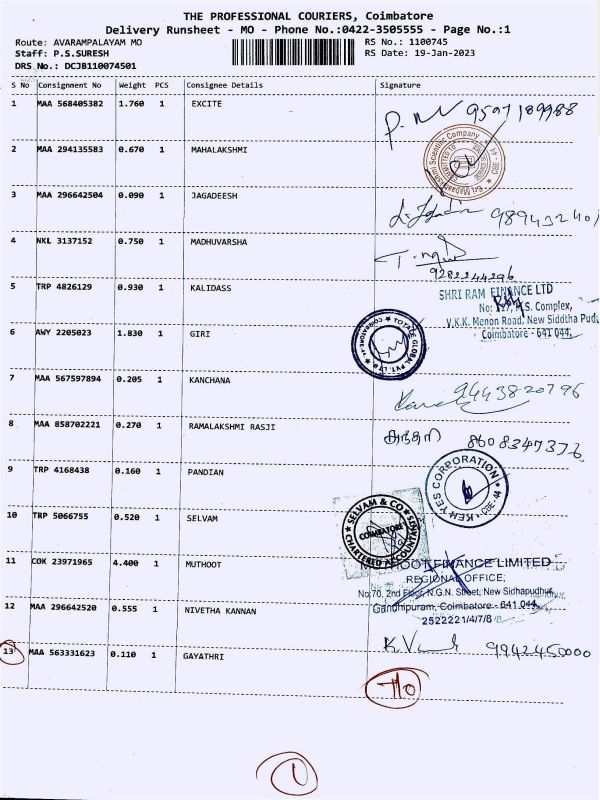 THE PROFESSIONAL COURIERS, Coimbatore
Delivery Runsheet - MO - Phone No.:0422-3505555 - Page No.:1
Route: AVARAMPALAYAM MO RS No.: 1100745
Staff: P.S.SURESH RS Date: 19-Jan-2023
DRS No.: DCJB110074501
S No Consignment No Weight PCS Consignee Details Signature
1 MAA 568405382 1.760 1 EXCITE 9597189988
2 MAA 294135583 0.670 1 MAHALAKSHMI
3 MAA 296642504 0.090 1 JAGADEESH
4 NKL 3137152 0.750 1 MADHUVARSHA
9282244296
5 TRP 4826129 0.930 1 KALIDASS
SHRI RAM FINANCE LTD
No: 127, H.S. Complex,
V.K.K. Menon Road, New Siddha Pudu
Coimbatore - 641 044.
6 AWY 2205023 1.830 1 GIRI
TOTALE GLOBAL PVT. LTD
7 MAA 567597894 0.205 1 KANCHANA 9443820796
8 MAA 858702221 0.270 1 RAMALAKSHMI RASJI 8608347376
9 TRP 4168438 0.160 1 PANDIAN
KEH YES CORPORATION CBE-44
10 TRP 5066755 0.520 1 SELVAM
SELVAM & CO
COIMBATORE
CHARTERED ACCOUNTANTS
11 COK 23971965 4.400 1 MUTHOOT
MUTHOOT FINANCE LIMITED
REGIONAL OFFICE,
No:70, 2nd Floor, N.G.N. Street, New Sidhapudhur,
Gandhipuram, Coimbatore - 641 044.
2522221/4/7/8
12 MAA 296642520 0.555 1 NIVETHA KANNAN
13 MAA 563331623 0.110 1 GAYATHRI 9942450000
1